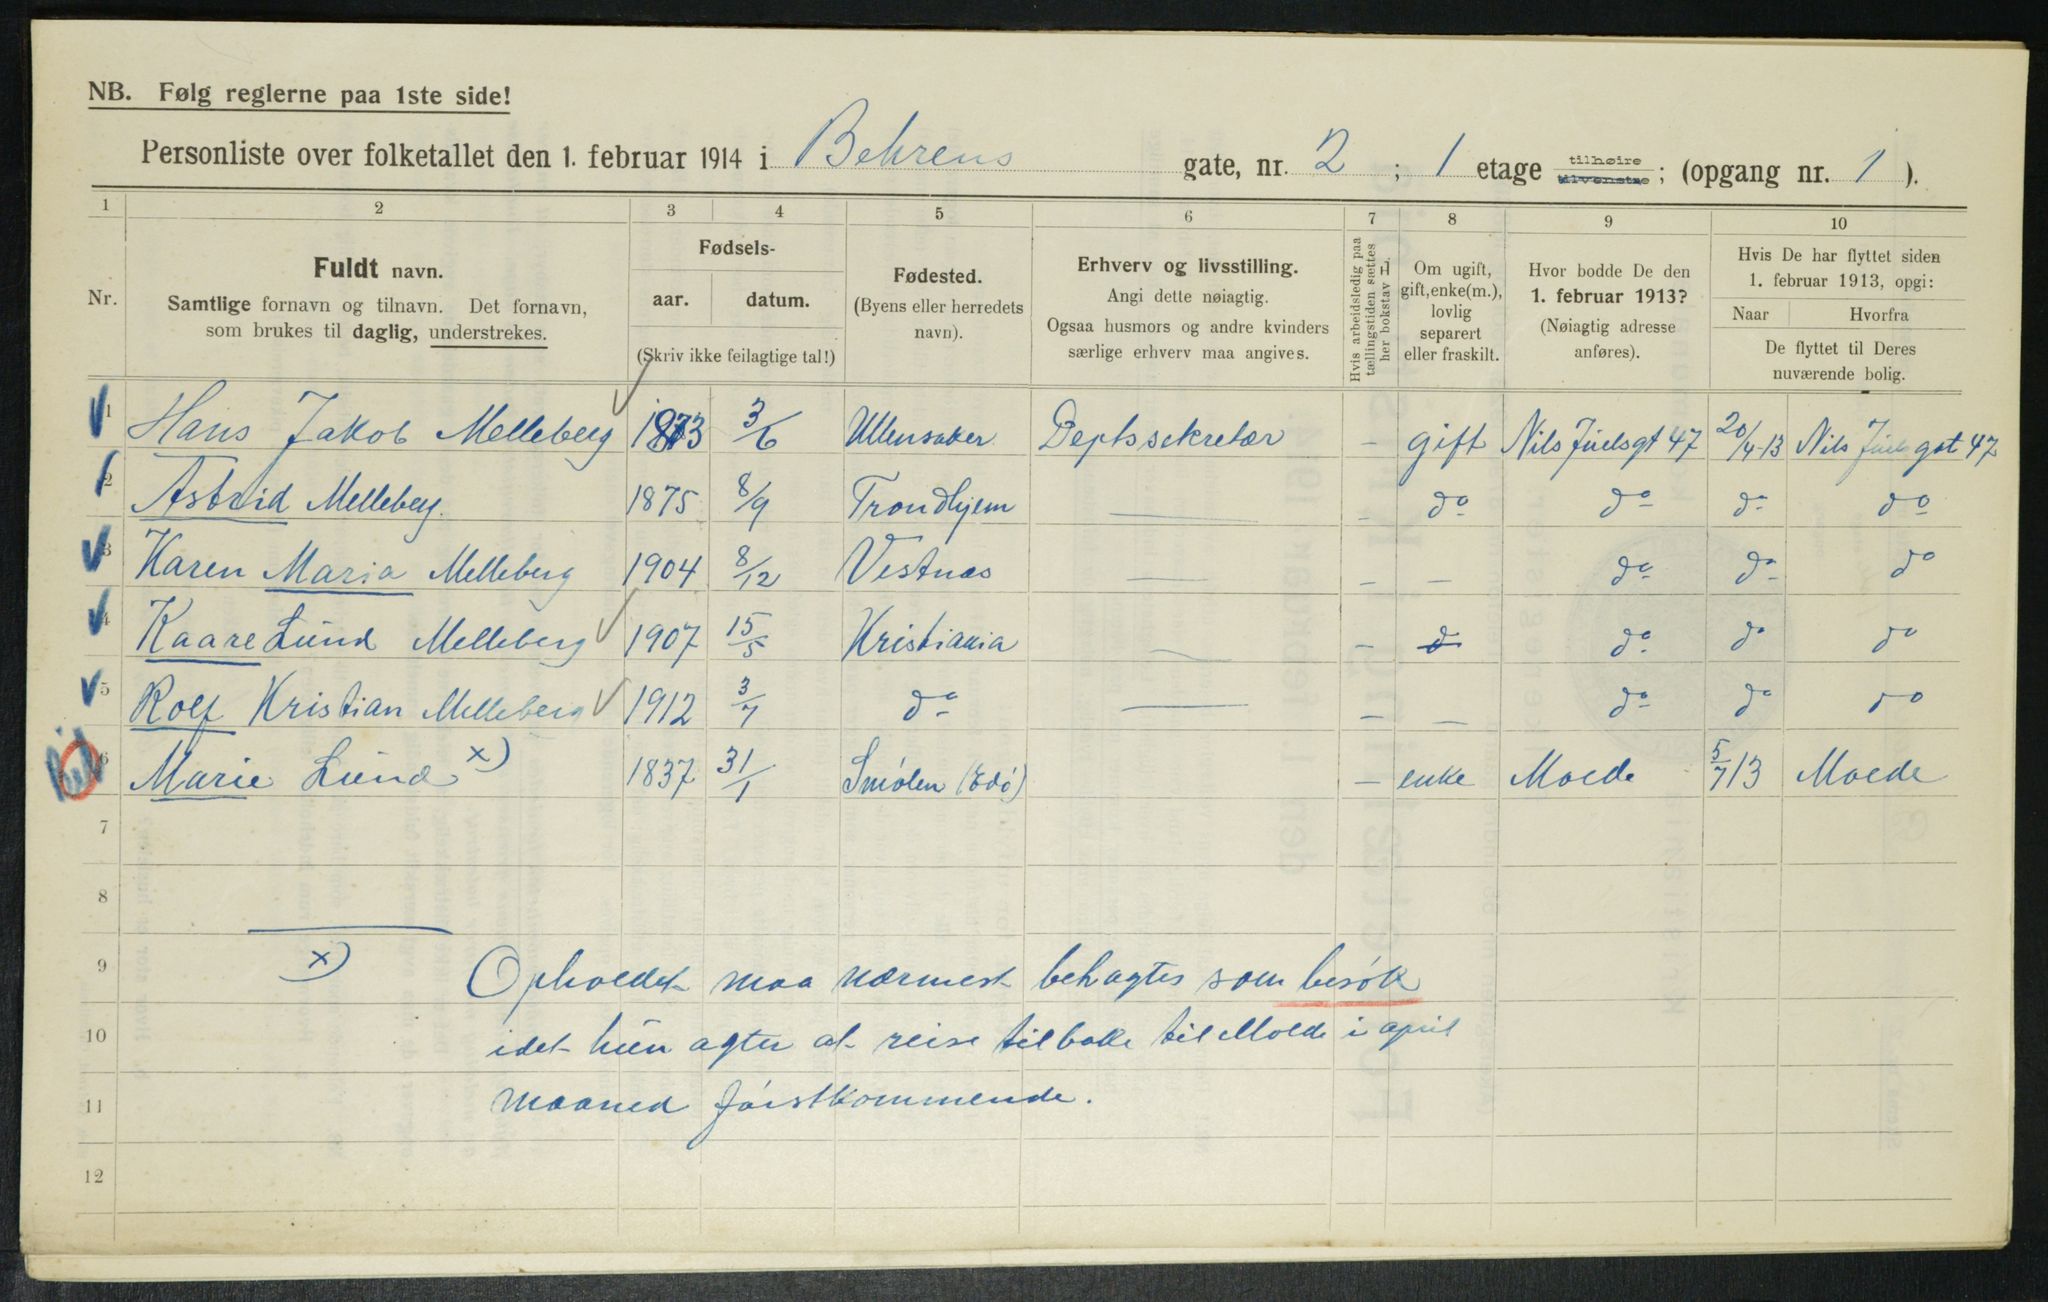 NB. Følg reglerne paa 1ste side!
Personliste over folketallet den 1. februar 1914 i Behrens gate, nr. 2 ; 1 etage tilhøire tilvenstre ; (opgang nr. 1 ).
1 2 3 4 5 6 7 8 9 10
Nr.
Fuldt navn.
Samtlige fornavn og tilnavn. Det fornavn,
som brukes til daglig, understrekes.
Fødsels-
aar. datum.
(Skriv ikke feilagtige tal!)
Fødested.
(Byens eller herredets
navn).
Erhverv og livsstilling.
Angi dette nøiagtig.
Ogsaa husmors og andre kvinders
særlige erhverv maa angives.
Hvis arbeidsledig paa
tællingstiden sættes
her bokstav H.
Om ugift,
gift, enke(m.),
lovlig
separert
eller fraskilt.
Hvor bodde De den
1. februar 1913?
(Nøiagtig adresse
anføres).
Hvis De har flyttet siden
1. februar 1913, opgi:
Naar Hvorfra
De flyttet til Deres
nuværende bolig.
1 Hans Jakob Melleberg 1873 3/6 Ullensaker Deptssekretær - gift Nils Juelsgt 47 20/4-13 Nils Juels gat 47
2 Astrid Melleberg. 1875 8/9 Trondhjem — - do do do do
3 Karen Maria Melleberg 1904 8/12 Vestnæs — - - do do do
4 Kaare Lund Melleberg 1907 15/5 Kristiania — - do do do do
5 Rolf Kristian Melleberg 1912 3/7 do — - - do do do
6 Marie Lund x) 1837 31/1 Smølen (Edø) - enke Molde 5/7 13 Molde
7
8
9 x) Opholdet maa nærmest betragtes som besøk
10 idet hun agter at reise tilbake til Molde i april
11 maaned førstkommende.
12